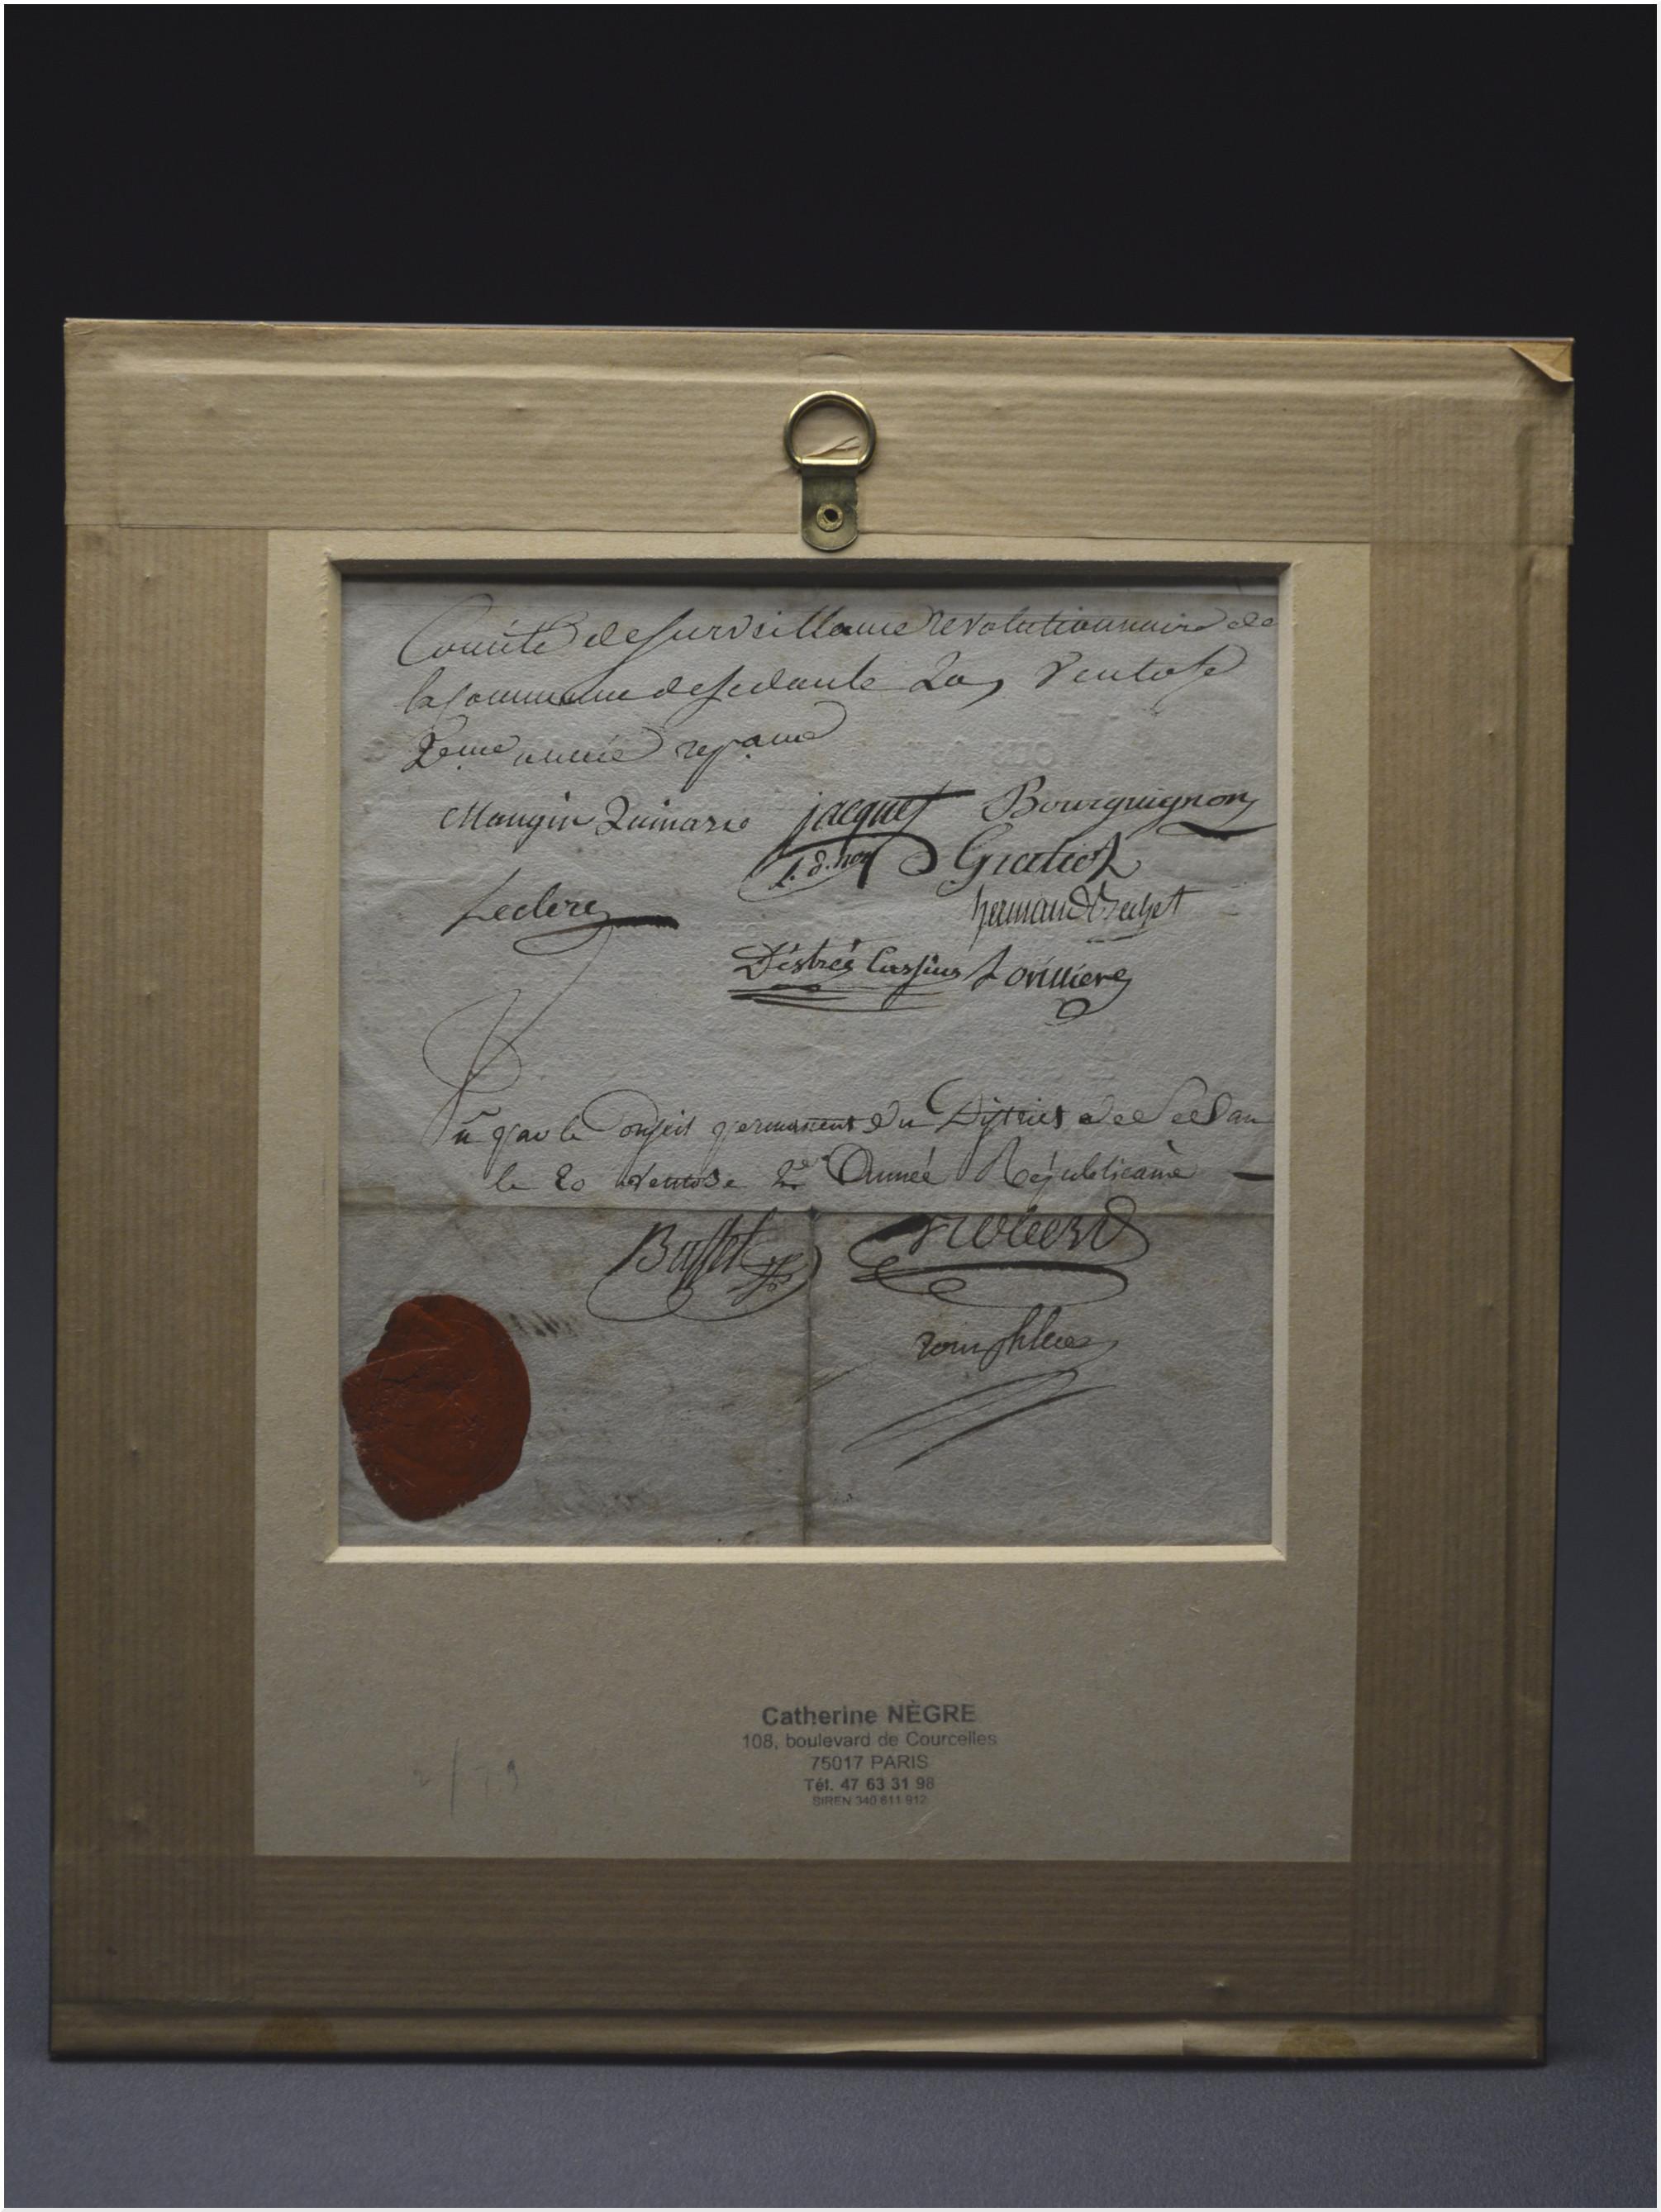 Comité de surveillance revolutionnaire de
la Commune de sedan le 20 Ventose
2eme année repame
Mangin jacquet Bourguignon
Gratiot
Leclerc hermand Bechet
Déstrés Cassius Lorilliere
Vu par le Conseil permanent du District de Sedan
le 20 ventose 2e Année Républicaine
Buffet
Catherine NÈGRE
108, boulevard de Courcelles
75017 PARIS
Tél. 47 63 31 98
SIREN 340 611 912